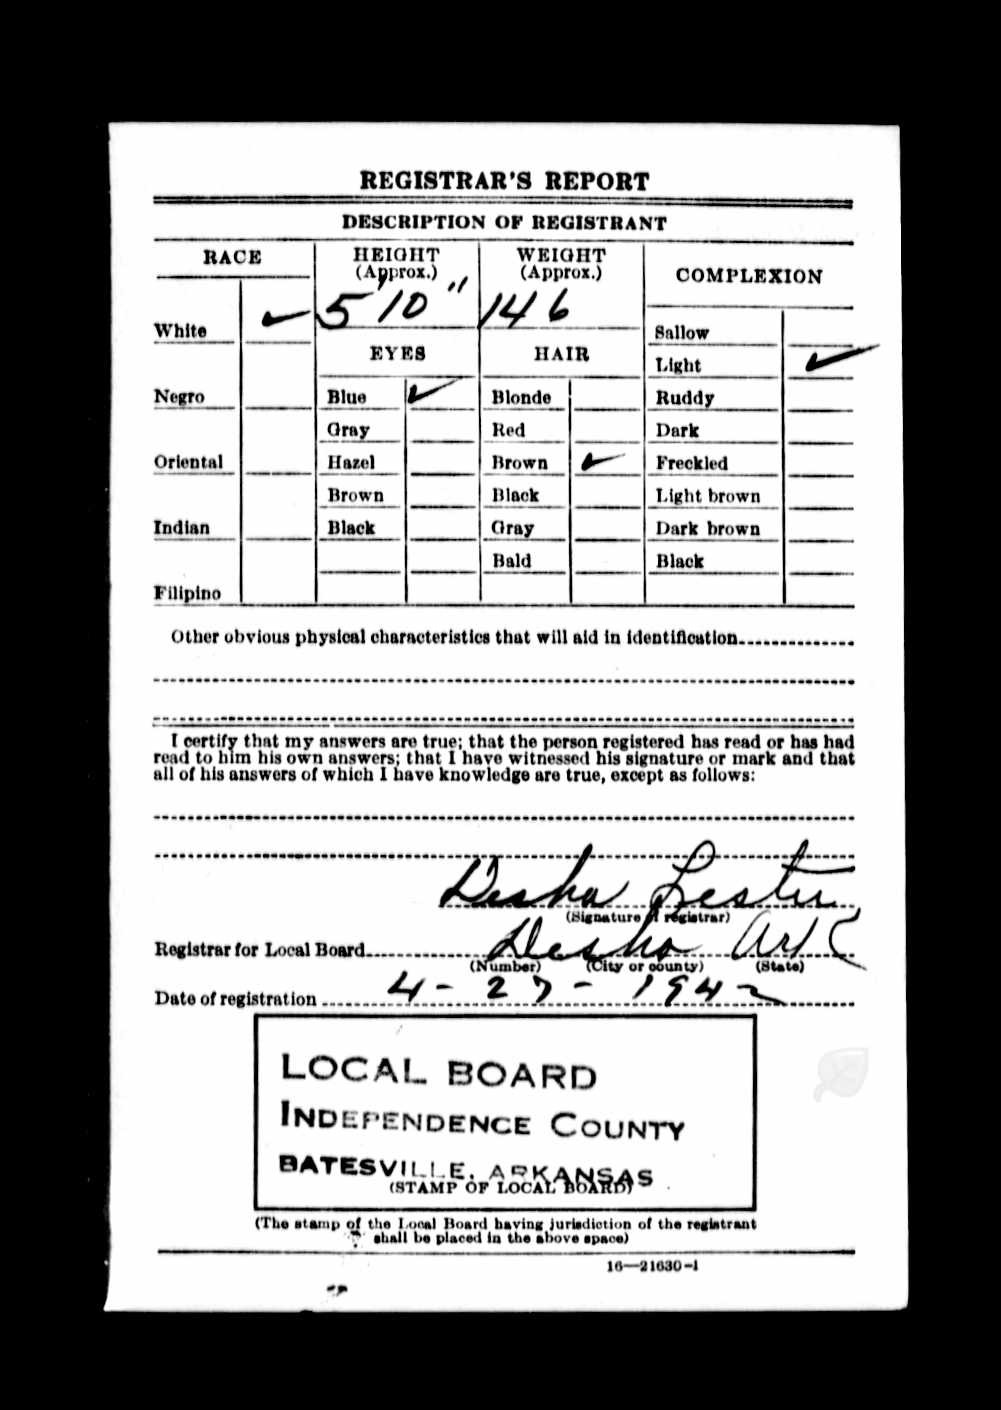 REGISTRAR'S REPORT
DESCRIPTION OF REGISTRANT
RACE
HEIGHT
(Approx.)
WEIGHT
(Approx.)
COMPLEXION
5'10"
146
White ✓
EYES
HAIR
Sallow
Light ✓
Negro
Blue ✓
Blonde
Ruddy
Gray
Red
Dark
Oriental
Hazel
Brown ✓
Freckled
Brown
Black
Light brown
Indian
Black
Gray
Dark brown
Bald
Black
Filipino
Other obvious physical characteristics that will aid in identification
I certify that my answers are true; that the person registered has read or has had
read to him his own answers; that I have witnessed his signature or mark and that
all of his answers of which I have knowledge are true, except as follows:
Desha Lester
(Signature of registrar)
Registrar for Local Board Desha Ark
(Number) (City or county) (State)
Date of registration 4-27-1942
LOCAL BOARD
INDEPENDENCE COUNTY
BATESVILLE, ARKANSAS
(STAMP OF LOCAL BOARD)
(The stamp of the Local Board having jurisdiction of the registrant
shall be placed in the above space)
16—21630-1